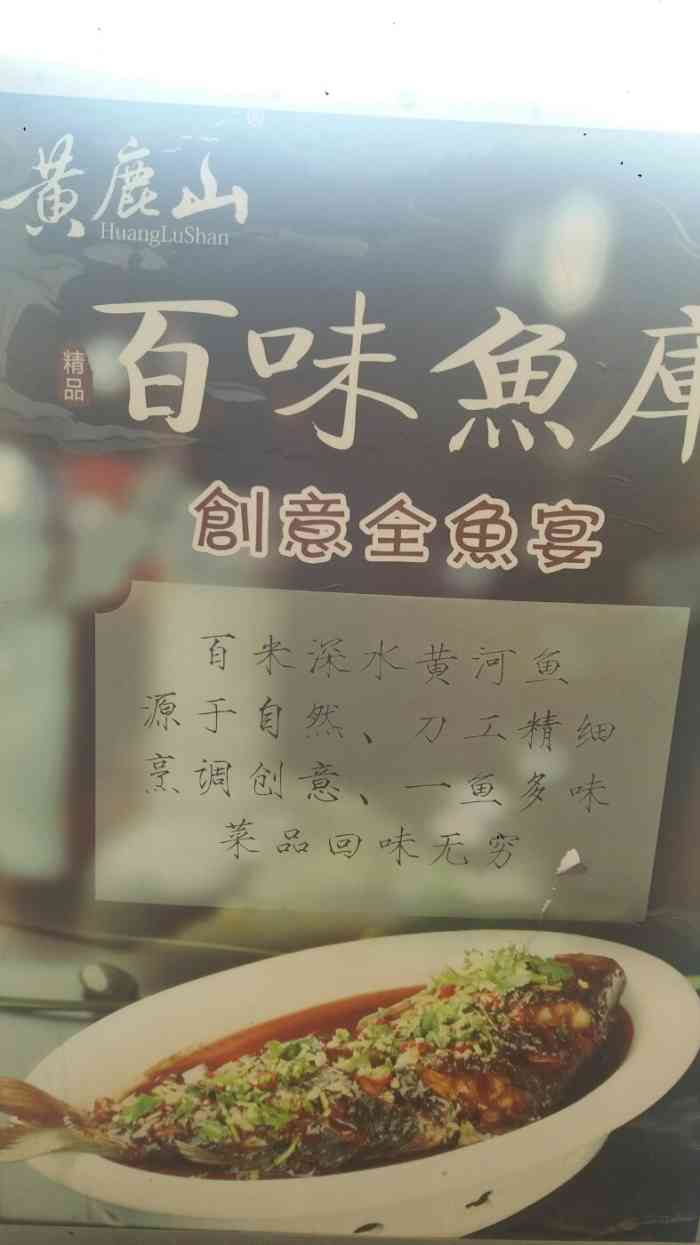 黄鹿山
HuangLuShan
精品
百味魚庫
創意全魚宴
百米深水黄河鱼
源于自然、刀工精细
烹调创意、一鱼多味
菜品回味无穷